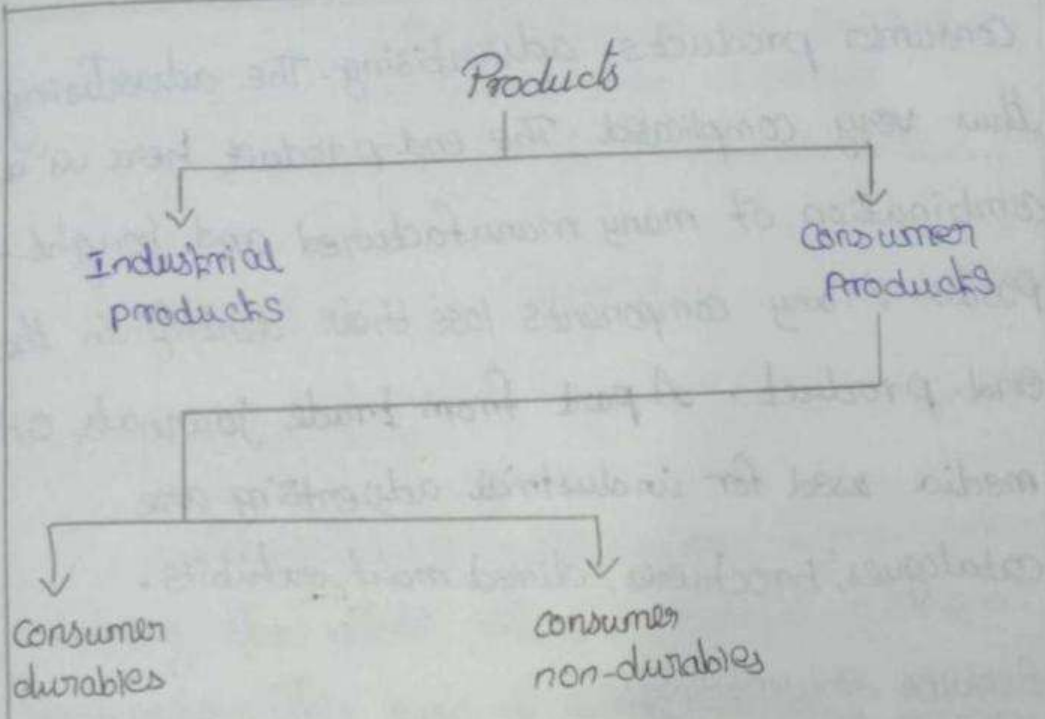 Products
Industrial
products
Consumer
Products
Consumer
durables
consumer
non-durables